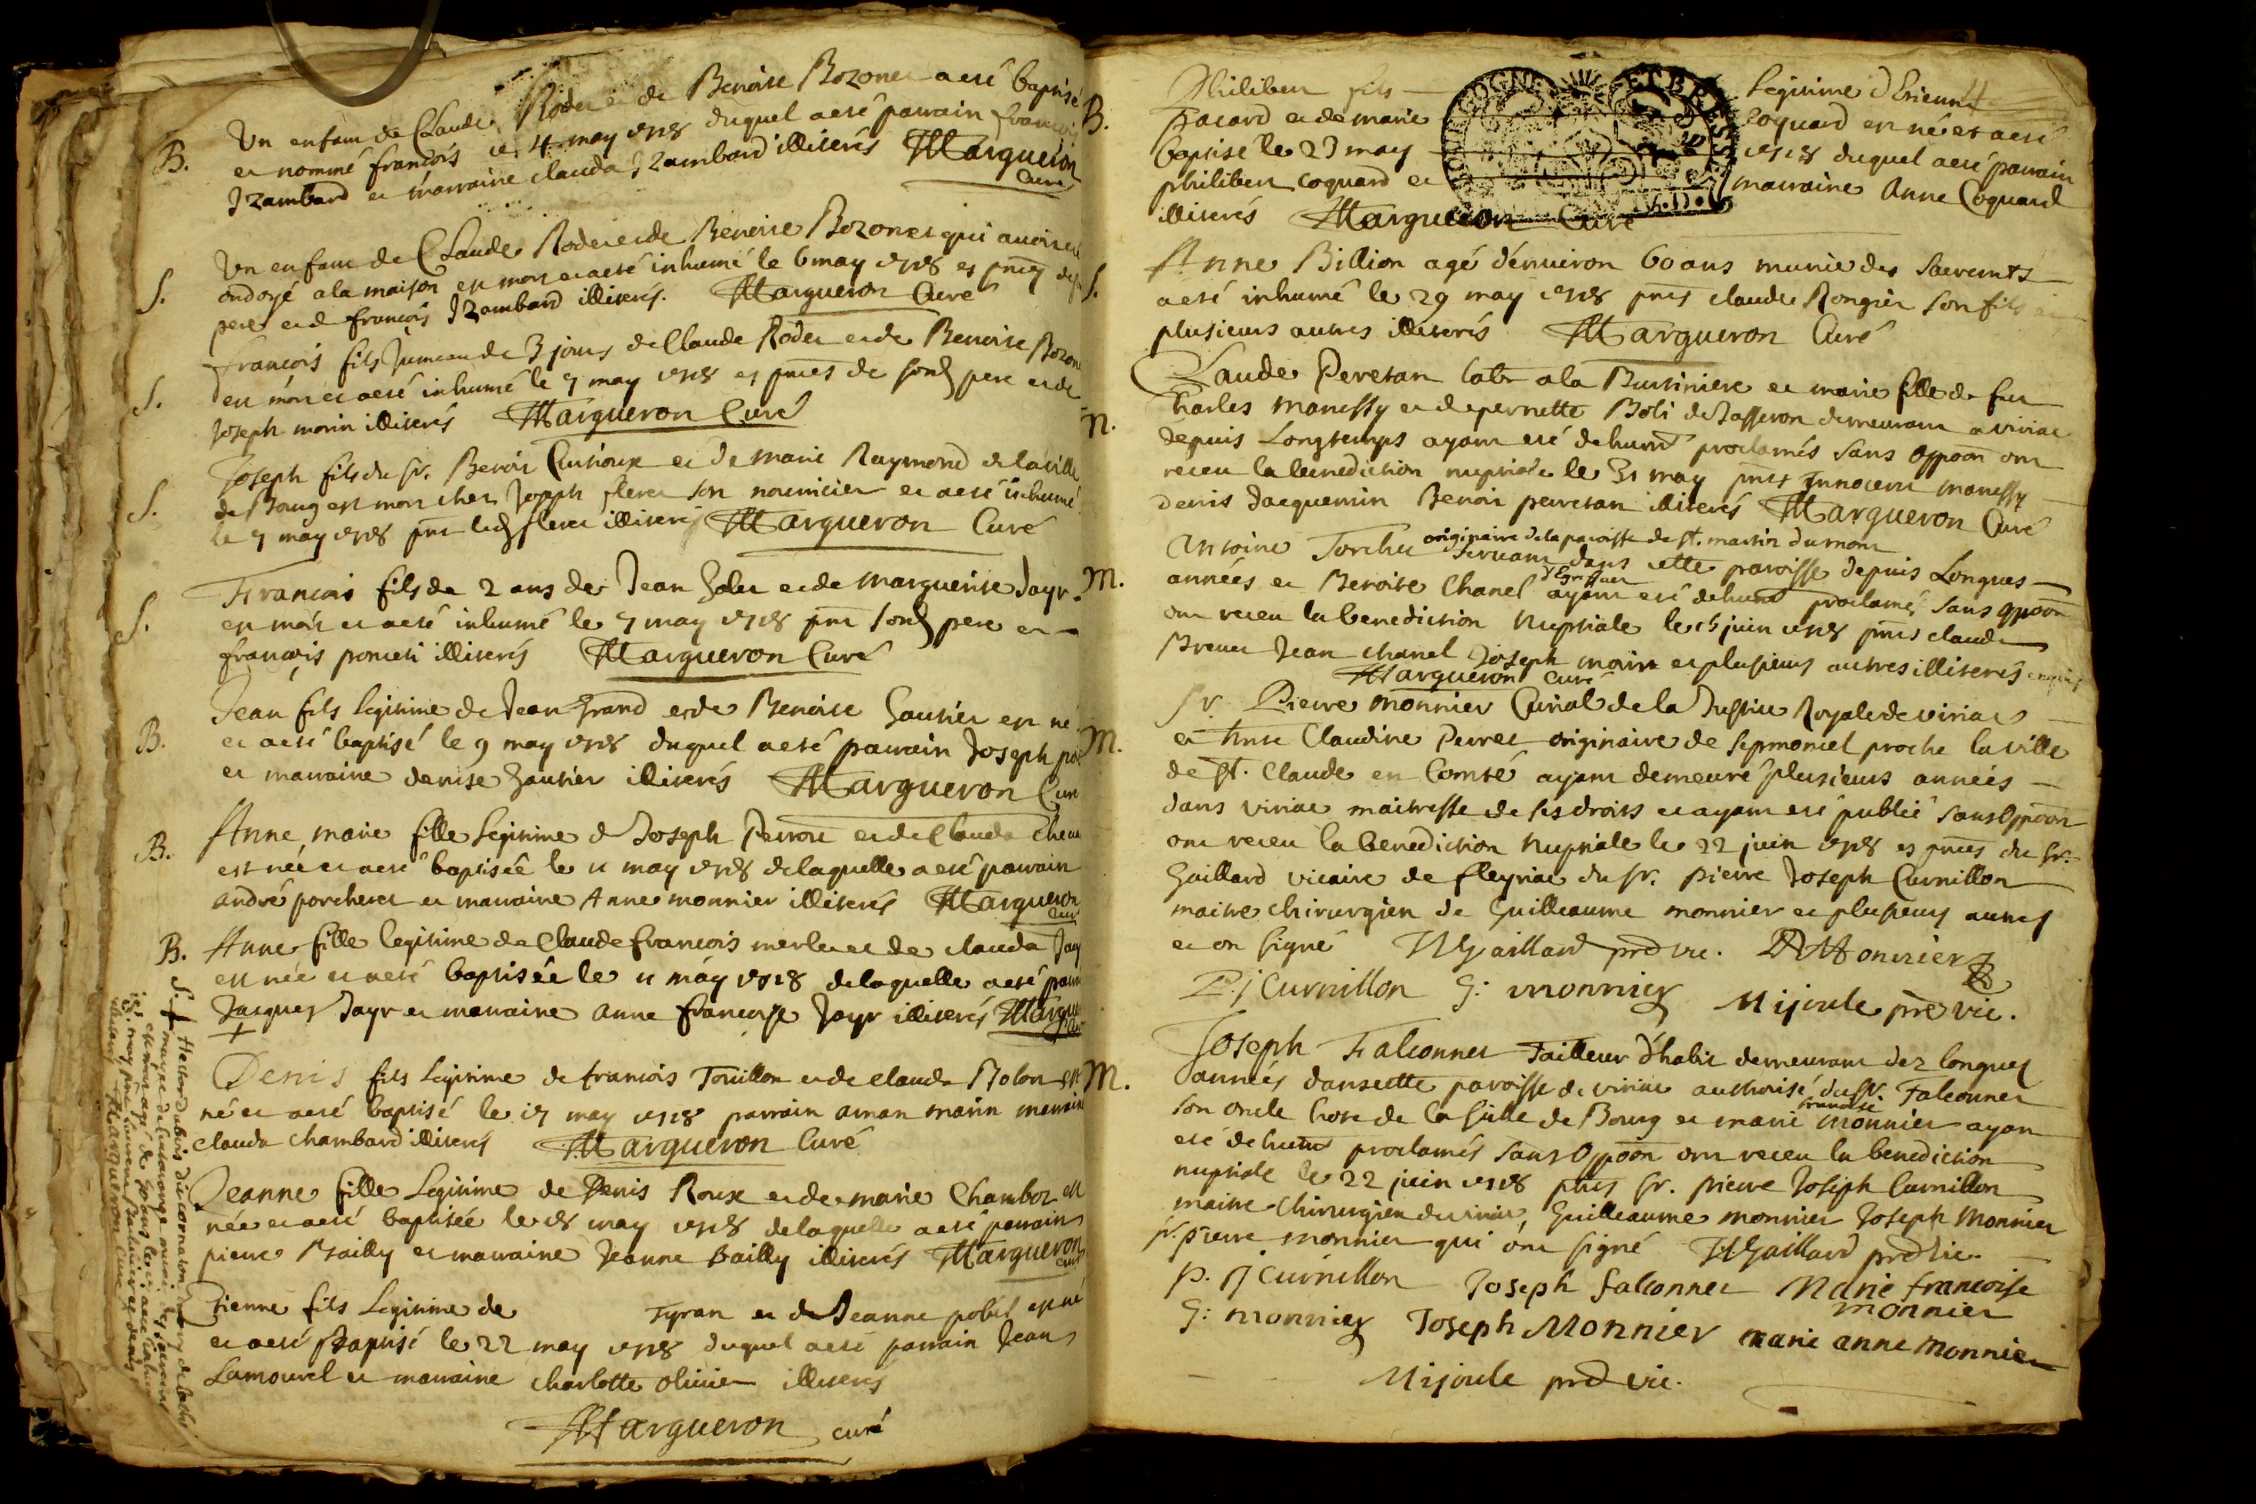 B. Un enfant de Claude Rodet et de Benoite Bozonet a eté baptisé
et nommé francois ce 4 may 1718 duquel a eté parrain francois
Izambard et marraine clauda Izambard illiterés Margueron
Curé
S. Un enfant de Claude Rodet et de Benoite Bozonet qui avoit eté
ondoyé a la maison est mort et a eté inhumé le 6 may 1718 es pnces
pere et de francois Izambard illiterés. Margueron Curé
S. francois fils Jumeau de 3 jours de Claude Rodet et de Benoite Bozon
est mort et a eté inhumé le 7 may 1718 es pnces de sond pere et de
Joseph morin illiterés Margueron Curé
S. Joseph fils du Sr. Benoit Cusioux et de marie Raymond de la ville
de Bourg est mort chez Joseph fleret son nourricier et a eté inhumé
le 7 may 1718 pnt led fleret illiterés Margueron Curé
S. Francois fils de 2 ans de Jean et de marguerite Jayr
est mort et a eté inhumé le 7 may 1718 pnt sond pere et
francois poncet illiterés Margueron Curé
B. Jean fils legitime de Jean Grand et de Benoite Gautier est né
et a eté baptisé le 9 may 1718 duquel a eté parrain Joseph
et marraine denise Gautier illiterés Margueron Curé
B. Anne marie fille legitime d Joseph Perrou et de Clauda
est née et a eté baptisée le 11 may 1718 de laquelle a eté parrain
andré porcheret et marraine Anne monnier illiterés Margueron
Curé
B. Anne fille legitime de Claude francois merle et de clauda Jay
est née et a eté baptisée le 11 may 1718 de laquelle a eté parr
Jacques Jayr et marraine anne francoise Jayr illiterés Margue
S. + Denis fils legitime de francois Touillon et de clauda Bolon est
né et a eté baptisé le 17 may 1718 parrain aman marin marraine
clauda chambard illiterés Margueron Curé
Jeanne fille legitime de Denis Roux et de marie Chamboz est
née et a eté baptisée le 18 may 1718 de laquelle a eté parrain
pierre Bailly et marraine Jeanne Bailly illiterés Margueron
curé
Etienne fils legitime de Tyran et de Jeanne pobel est né
et a eté Baptisé le 22 may 1718 duquel a eté parrain Jean
Lamourel et marraine charlotte olivier illiterés
Margueron curé
4
B. Philibert fils legitime d Etienne
Pacard et de marie Coquard est né et a eté
baptisé le 23 may 1718 duquel a eté parrain
philibert coquard et marraine Anne Coquard
illiterés Margueron Curé
BOURGOGNE ET BRESSE
S. Anne Billion agé d'environ 60 ans munie des Sacremts
a eté inhumé le 29 may 1718 pnts claude Rongier son fils et
plusieurs autres illiterés Margueron Curé
N. Claude Peretan labr a la Bursiniere et marie fille de feu
Charles manessy et de pernette Boli de Jasseron demeurant a viriat
depuis Longtemps ayant eté dehument proclamés sans oppoon ont
receu la benediction nuptiale le 31 may pnts Innocent manessy
denis Jacquemin Benoit peretan illiterés Margueron Curé
M. Antoine Torchet originaire de la paroisse de st. martin du mont
servant dans cette paroisse depuis Longues
années et Benoite Chanel ayant eté dehument proclamés sans oppoon
ont receu la benediction Nuptiale le 15 juin 1718 pnts claude
Brevet Jean chanel Joseph morin et plusieurs autres illiterés
Margueron curé
M. Sr. Pierre Monnier Curial de la Justice Royale de viriat
et hnte Claudine Perret originaire de Septmoncel proche la ville
de St. Claude en Comté ayant demeuré plusieurs années
dans viriat maitresse de ses droits et ayant eté publié sans oppoon
ont receu la benediction Nuptiale le 22 juin 1718 es pnces du Sr.
Gaillard vicaire de fleyriat du Sr. pierre Joseph Curnillon
maitre chirurgien de Guilleaume monnier et plusieurs autres
et on signé Gaillard prd vic. Monnier
P. J Curnillon G: monnier Mijoule pre vic.
M. Joseph Falconnet Tailleur d'habit demeurant dez longues
années dans cette paroisse de viriat authorisé du Sr. Falconnet
son oncle hoste de la ville de Bourg et marie francoise monnier ayan
eté dehument proclamés sans oppoon ont receu la benediction
nuptiale le 22 juin 1718 pnts Sr. pierre Joseph Curnillon
maitre chirurgien de viriat, Guilleaume monnier Joseph Monnier
Sr. pierre monnier qui ont signé Gaillard prd vic.
P. J Curnillon Joseph falconnet Marie francoise
monnier
G: monnier Joseph Monnier marie anne monnier
Mijoule prd vic.